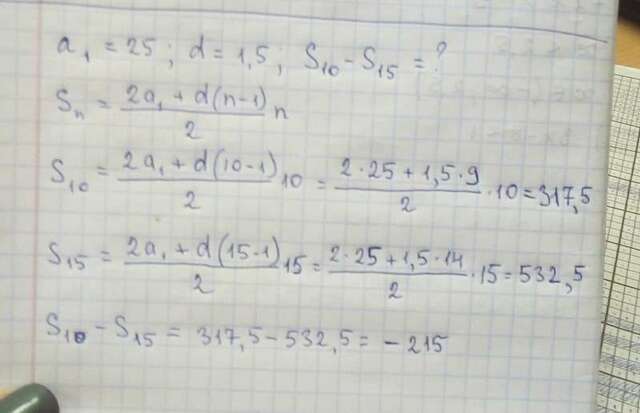 a₁ = 25 ; d = 1,5 ; S₁₀ - S₁₅ = ?
Sₙ = (2a₁ + d(n-1))/2 n
S₁₀ = (2a₁ + d(10-1))/2 10 = (2·25 + 1,5·9)/2 ·10 = 317,5
S₁₅ = (2a₁ + d(15-1))/2 15 = (2·25 + 1,5·14)/2 ·15 = 532,5
S₁₀ - S₁₅ = 317,5 - 532,5 = - 215